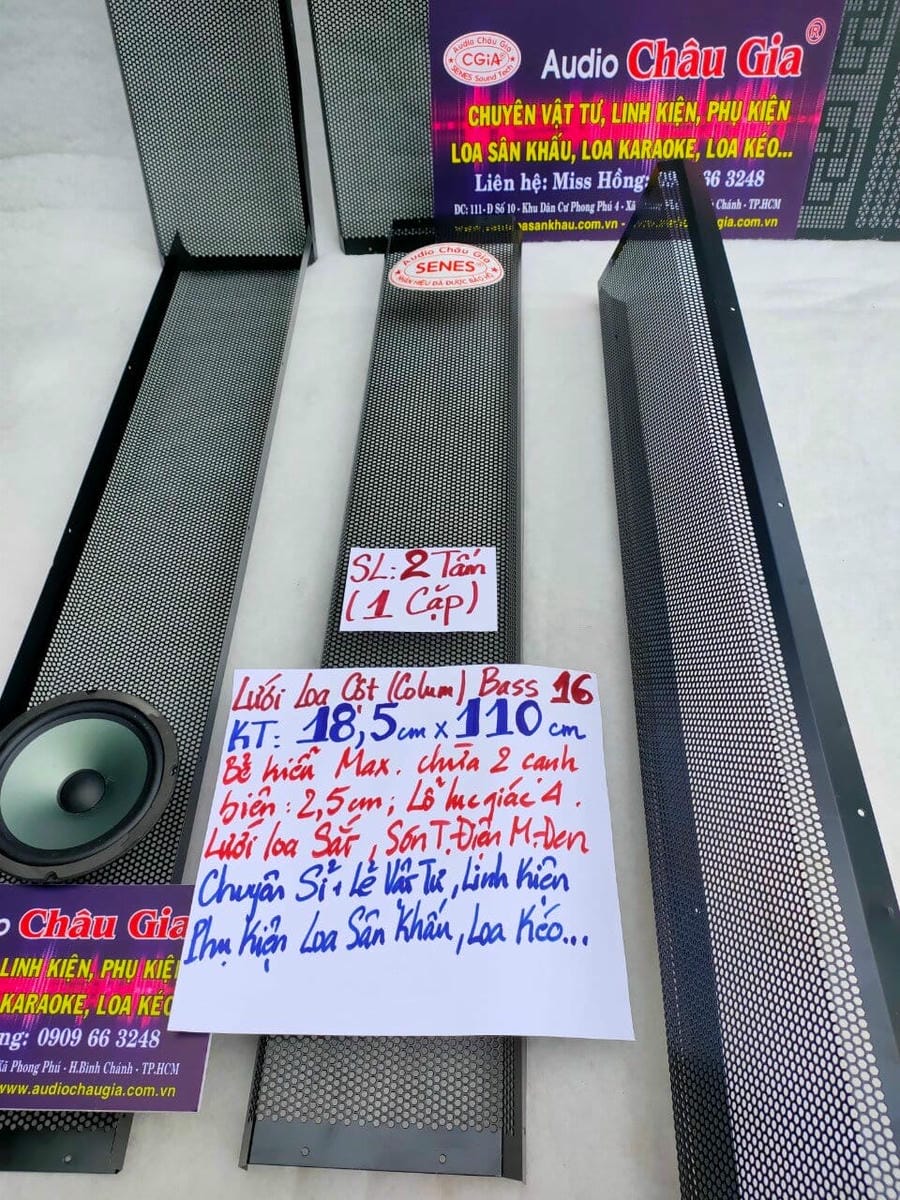 Audio Châu Gia
CGiA®
SENES Sound Tech
Audio Châu Gia ®
CHUYÊN VẬT TƯ, LINH KIỆN, PHỤ KIỆN
LOA SÂN KHẤU, LOA KARAOKE, LOA KÉO...
Liên hệ: Miss Hồng: 66 3248
ĐC: 111-D Số 10 - Khu Dân Cư Phong Phú 4 - Xã Chánh - TP.HCM
Audio Châu Gia
SENES®
NHÃN HIỆU ĐÃ ĐƯỢC BẢO HỘ
SL: 2 Tấm
(1 Cặp)
Lưới Loa Cột (Colum) Bass 16
KT: 18,5cm x 110cm
Bẻ kiểu Max. chừa 2 cạnh
biên: 2,5cm; Lỗ lục giác 4.
Lưới loa Sắt, Sơn T.Điện M.Đen
Chuyên Sỉ + Lẻ Vật Tư, Linh Kiện
Phụ Kiện Loa Sân Khấu, Loa Kéo...
Châu Gia
LINH KIỆN, PHỤ KIỆ
KARAOKE, LOA KÉO
ng: 0909 66 3248
Xã Phong Phú - H.Bình Chánh - TP.HCM
www.audiochaugia.com.vn